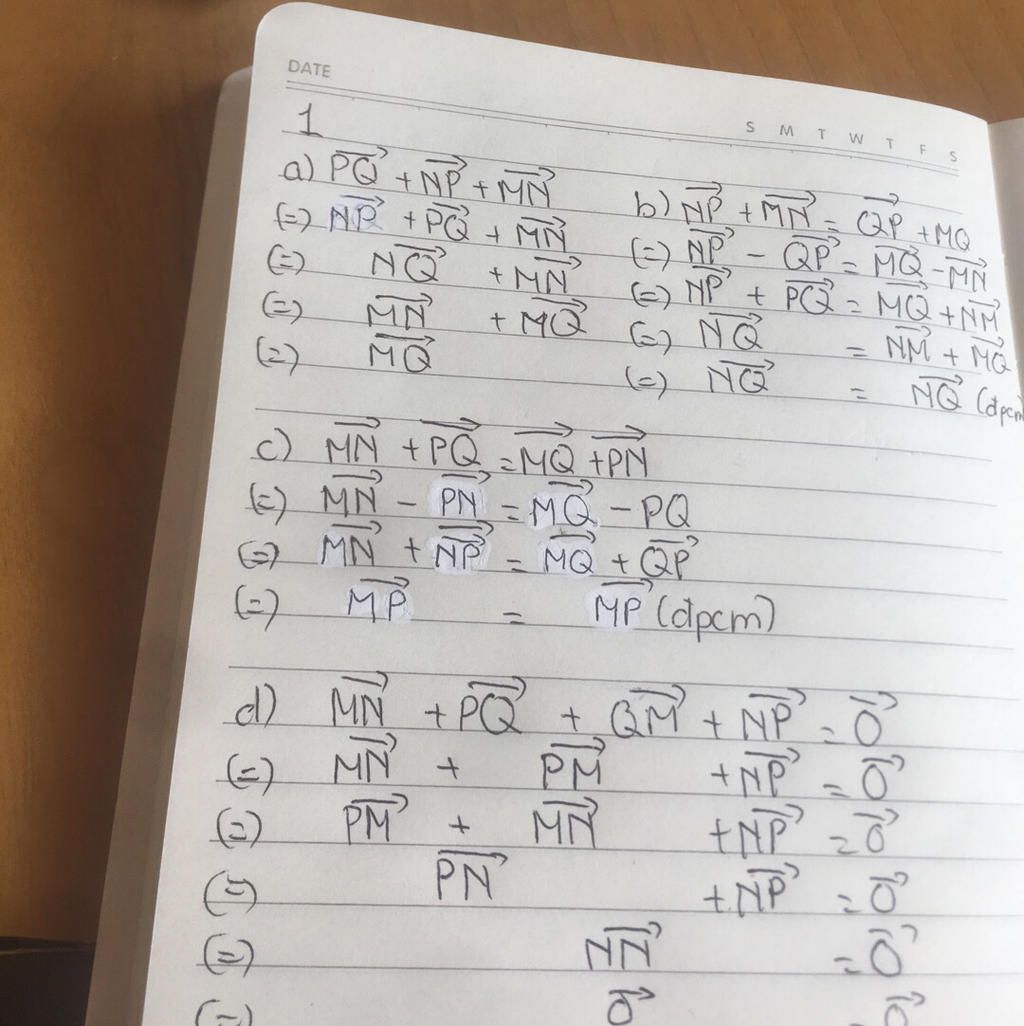 DATE
S M T W T F S
1
a) $\overrightarrow{PQ} + \overrightarrow{NP} + \overrightarrow{MN}$
(=) $\overrightarrow{NP} + \overrightarrow{PQ} + \overrightarrow{MN}$
(=) $\overrightarrow{NQ} + \overrightarrow{MN}$
(=) $\overrightarrow{MN} + \overrightarrow{MQ}$
(=) $\overrightarrow{MQ}$
b) $\overrightarrow{NP} + \overrightarrow{MN} = \overrightarrow{QP} + MQ$
(=) $\overrightarrow{NP} - \overrightarrow{QP} = \overrightarrow{MQ} - \overrightarrow{MN}$
(=) $\overrightarrow{NP} + \overrightarrow{PQ} = \overrightarrow{MQ} + \overrightarrow{NM}$
(=) $\overrightarrow{NQ} = \overrightarrow{NM} + \overrightarrow{MQ}$
(=) $\overrightarrow{NQ} = \overrightarrow{NQ}$ (dpcm
c) $\overrightarrow{MN} + \overrightarrow{PQ} = \overrightarrow{MQ} + \overrightarrow{PN}$
(=) $\overrightarrow{MN} - \overrightarrow{PN} = \overrightarrow{MQ} - PQ$
(=) $\overrightarrow{MN} + \overrightarrow{NP} = \overrightarrow{MQ} + \overrightarrow{QP}$
(=) $\overrightarrow{MP} = \overrightarrow{MP}$ (dpcm)
d) $\overrightarrow{MN} + \overrightarrow{PQ} + \overrightarrow{QM} + \overrightarrow{NP} = \overrightarrow{0}$
(=) $\overrightarrow{MN} + \overrightarrow{PM} + \overrightarrow{NP} = \overrightarrow{0}$
(=) $\overrightarrow{PM} + \overrightarrow{MN} + \overrightarrow{NP} = \overrightarrow{0}$
(=) $\overrightarrow{PN} + \overrightarrow{NP} = \overrightarrow{0}$
(=) $\overrightarrow{NN} = \overrightarrow{0}$
(=) $\overrightarrow{0} = \overrightarrow{0}$